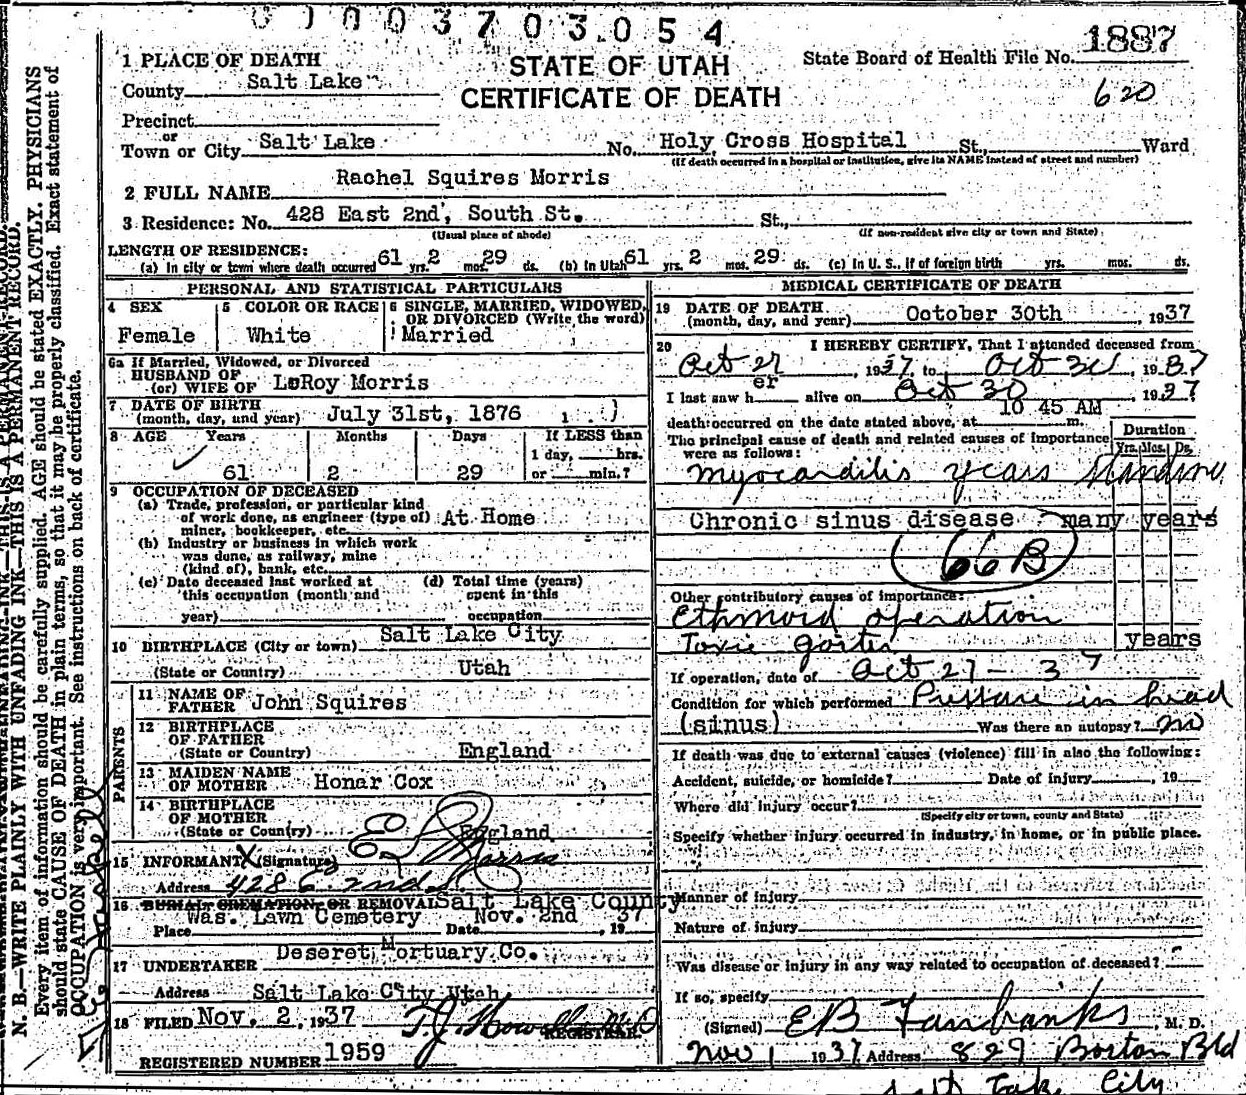 0 0 0 0 3 7 0 3 0 5 4
STATE OF UTAH
CERTIFICATE OF DEATH
State Board of Health File No. 1887
620
1 PLACE OF DEATH
County Salt Lake
Precinct
or
Town or City Salt Lake No. Holy Cross Hospital St., Ward
(If death occurred in a hospital or institution, give its NAME instead of street and number)
2 FULL NAME Rachel Squires Morris
3 Residence: No. 428 East 2nd, South St. St.,
(Usual place of abode) (If non-resident give city or town and State)
LENGTH OF RESIDENCE:
(a) In city or town where death occurred 61 yrs. 2 mos. 29 ds. (b) In Utah 61 yrs. 2 mos. 29 ds. (c) In U. S., if of foreign birth yrs. mos. ds.
PERSONAL AND STATISTICAL PARTICULARS
4 SEX Female
5 COLOR OR RACE White
6 SINGLE, MARRIED, WIDOWED, OR DIVORCED (Write the word) Married
6a If Married, Widowed, or Divorced
HUSBAND OF
(or) WIFE OF LeRoy Morris
7 DATE OF BIRTH
(month, day, and year) July 31st, 1876
8 AGE Years Months Days If LESS than
1 day, hrs.
61 2 29 or min.?
9 OCCUPATION OF DECEASED
(a) Trade, profession, or particular kind
of work done, as engineer (type of) At Home
miner, bookkeeper, etc.
(b) Industry or business in which work
was done, as railway, mine
(kind of), bank, etc.
(c) Date deceased last worked at
this occupation (month and
year)
(d) Total time (years)
spent in this
occupation
10 BIRTHPLACE (City or town) Salt Lake City
(State or Country) Utah
PARENTS
11 NAME OF
FATHER John Squires
12 BIRTHPLACE
OF FATHER
(State or Country) England
13 MAIDEN NAME
OF MOTHER Honar Cox
14 BIRTHPLACE
OF MOTHER
(State or Country) England
15 INFORMANT X (Signature) Morris
Address 428 E. 2nd S
16 BURIAL, CREMATION, OR REMOVAL Salt Lake County
Was. Lawn Cemetery Nov. 2nd 37
Place Date , 19
17 UNDERTAKER Deseret Mortuary Co.
Address Salt Lake City Utah
18 FILED Nov. 2, 1937
REGISTRAR.
REGISTERED NUMBER 1959
MEDICAL CERTIFICATE OF DEATH
19 DATE OF DEATH
(month, day, and year) October 30th , 1937
20 I HEREBY CERTIFY, That I attended deceased from
Oct 27 , 1937, to Oct 30 , 1937
I last saw h er alive on Oct 30 , 1937
death occurred on the date stated above, at 10 45 AM m.
The principal cause of death and related causes of importance
were as follows:
Duration
Yrs. Mos. Ds.
Myocarditis years standing
Chronic sinus disease many years
66B
Other contributory causes of importance:
Ethmoid operation
Toxic goiter years
If operation, date of Oct 27 - 37
Condition for which performed Pressure in head
(sinus) Was there an autopsy? no
If death was due to external causes (violence) fill in also the following:
Accident, suicide, or homicide? Date of injury , 19
Where did injury occur?
(Specify city or town, county and State)
Specify whether injury occurred in industry, in home, or in public place.
Manner of injury
Nature of injury
Was disease or injury in any way related to occupation of deceased?
If so, specify
(Signed) EB Fairbanks , M. D.
Nov 1 1937 Address 829 Boston Bld
Salt Lake City
N. B.—WRITE PLAINLY WITH UNFADING INK—THIS IS A PERMANENT RECORD.
Every item of information should be carefully supplied. AGE should be stated EXACTLY. PHYSICIANS
should state CAUSE OF DEATH in plain terms, so that it may be properly classified. Exact statement of
OCCUPATION is very important. See instructions on back of certificate.